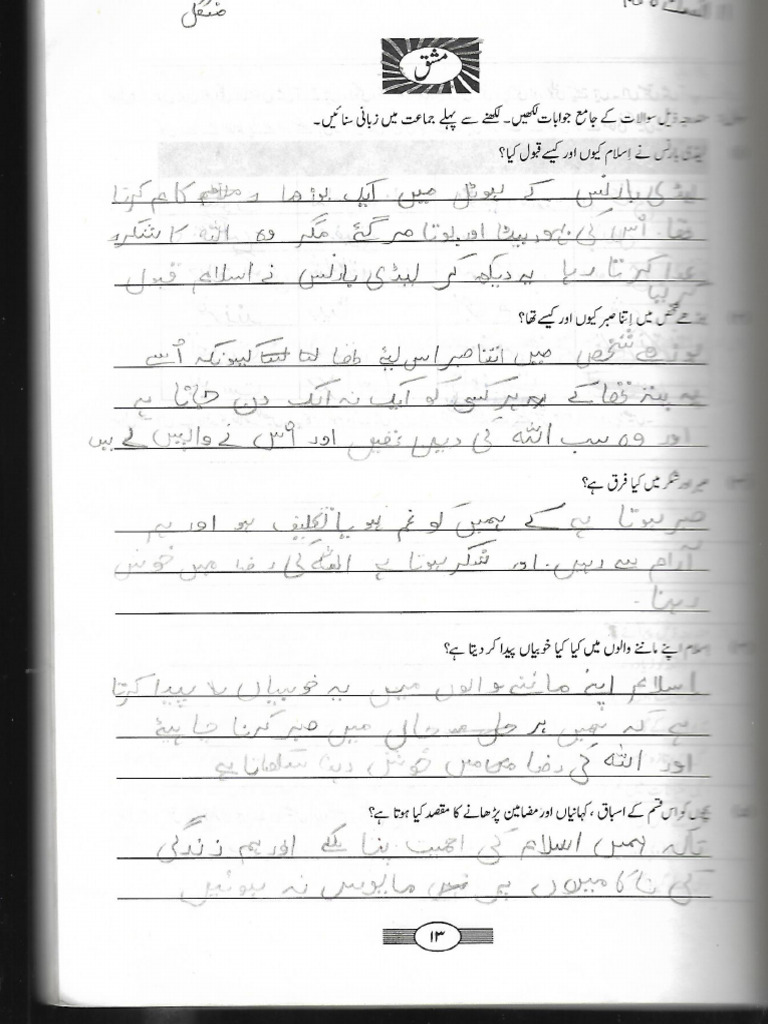 منگل
مشق
مندرجہ ذیل سوالات کے جامع جوابات لکھیں۔ لکھنے سے پہلے جماعت میں زبانی سنائیں۔
لیڈی بارنس نے اسلام کیوں اور کیسے قبول کیا؟
لیڈی بارنس کے ہوٹل میں ایک بوڑھا ملازم کام کرتا
تھا۔ اُس کی بہو، بیٹا اور پوتا مر گئے مگر وہ اللہ کا شکر
ادا کرتا رہا یہ دیکھ کر لیڈی بارنس نے اسلام قبول
کر لیا
بوڑھے شخص میں اِتنا صبر کیوں اور کیسے تھا؟
بوڑھے شخص میں اتنا صبر اس لیئے تھا کیونکہ اُسے
یہ پتہ تھا کے ہر کسی کو ایک نہ ایک دن جانا ہے
اور وہ سب اللہ کی دین تھیں اور اُس نے واپس لے لیں
صبر اور شکر میں کیا فرق ہے؟
صبر ہوتا ہے کے ہمیں کو غم ہو یا تکلیف ہو اور ہم
آرام سے رہیں۔ اور شکر ہوتا ہے اللہ کی رضا میں خوش
رہنا۔
اسلام اپنے ماننے والوں میں کیا کیا خوبیاں پیدا کر دیتا ہے؟
اسلام اپنے ماننے والوں میں یہ خوبیاں پیدا کرتا
ہے کہ ہمیں ہر حال میں صبر کرنا چاہیئے
اور اللہ کی رضا میں خوش رہنا سکھاتا ہے
بچوں کو اس قسم کے اسباق، کہانیاں اور مضامین پڑھانے کا مقصد کیا ہوتا ہے؟
تاکہ ہمیں اسلام کی اہمیت پتا لگے اور ہم زندگی
کی ناکامیوں پہ مایوس نہ ہوئیں
۱۳